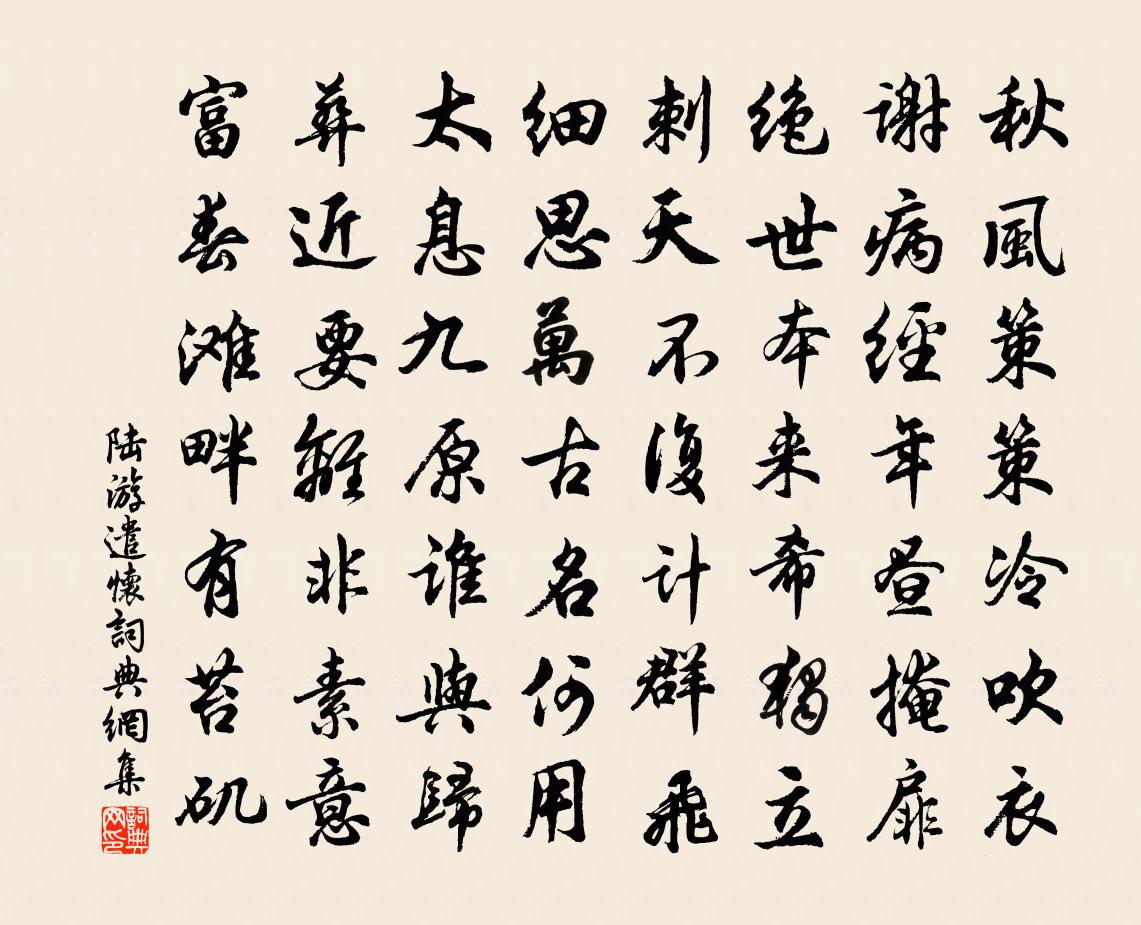 秋風策策冷吹衣
谢病經年昼掩扉
绝世本来希獨立
刺天不復计群飛
细思萬古名何用
太息九原谁與歸
葬近要離非素意
富春滩畔有苔矶
陆游遣懷詞典網集
詞典网印